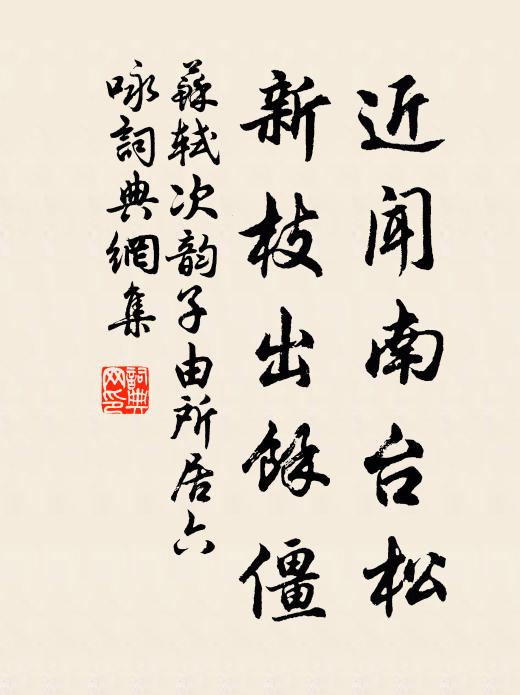 近聞南台松
新枝出餘僵
蘇軾次韵子由所居六
咏詞典網集
詞典网印